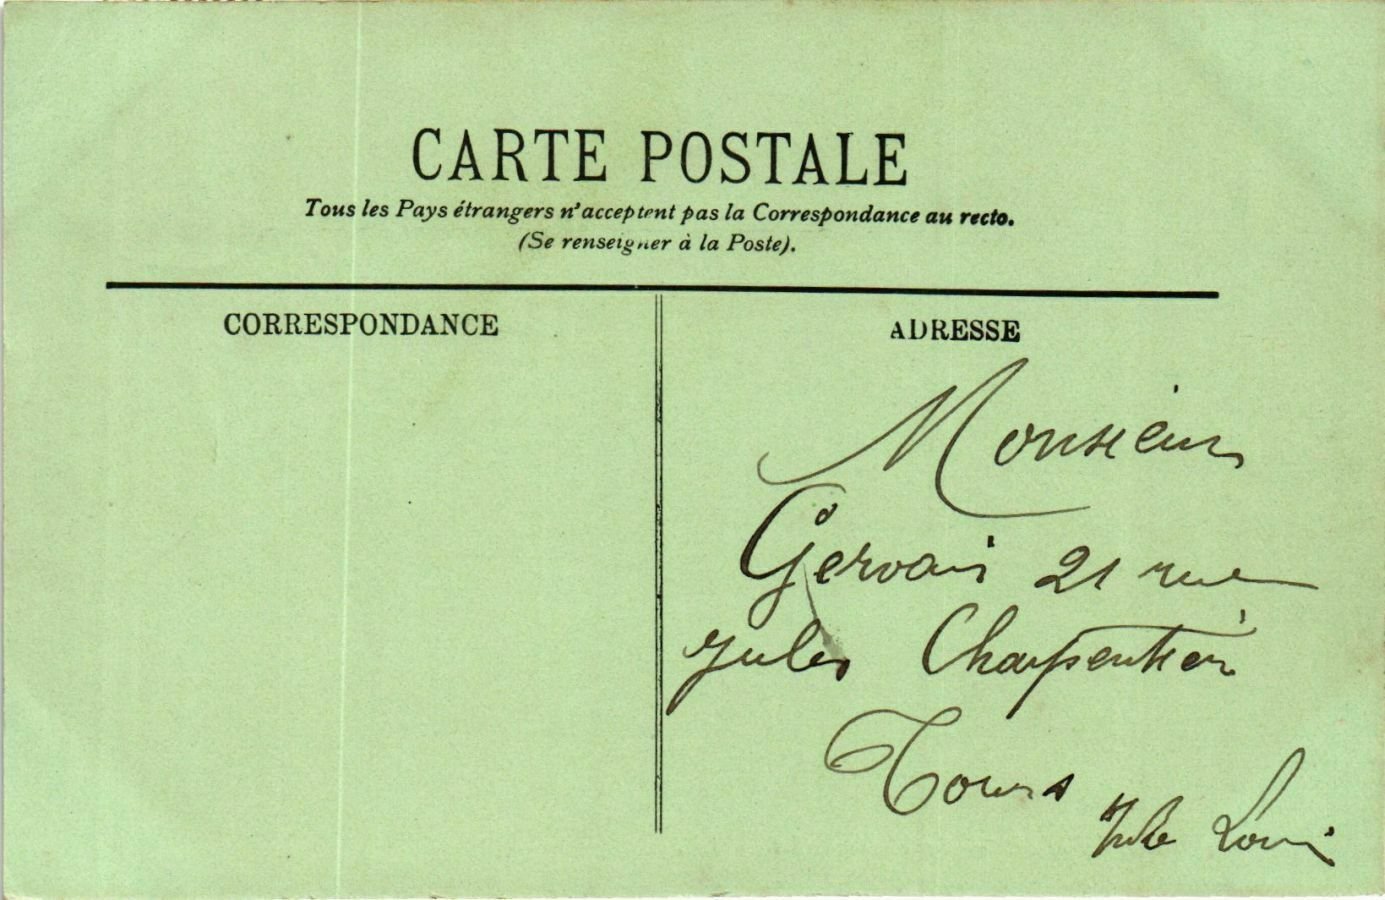 CARTE POSTALE
Tous les Pays étrangers n'acceptent pas la Correspondance au recto.
(Se renseigner à la Poste).
CORRESPONDANCE
ADRESSE
Monsieur
Gervais 21 rue
Jules Charpentier
Tours